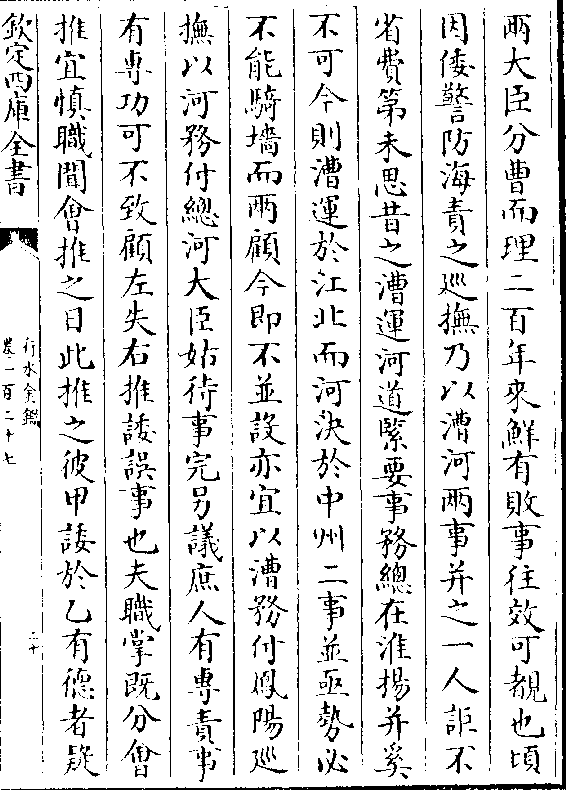 兩大臣分曹而理二百年來鮮有敗事往效可覩也頃
因倭警防海責之巡撫乃以漕河兩事并之一人詎不
省費第未思昔之漕運河道緊要事務總在淮揚并奚
不可今則漕運於江北而河決於中州二事並亟勢必
不能騎墻而兩顧今即不並設亦宜以漕務付鳳陽巡
撫以河務付總河大臣姑待事完另議庶人有專責事
有專功可不致顧左失右推諉誤事也夫職掌既分會
推宜慎職聞會推之日此推之彼甲諉於乙有德者疑
欽定四庫全書
行水金鑑
卷一百二十七
二十